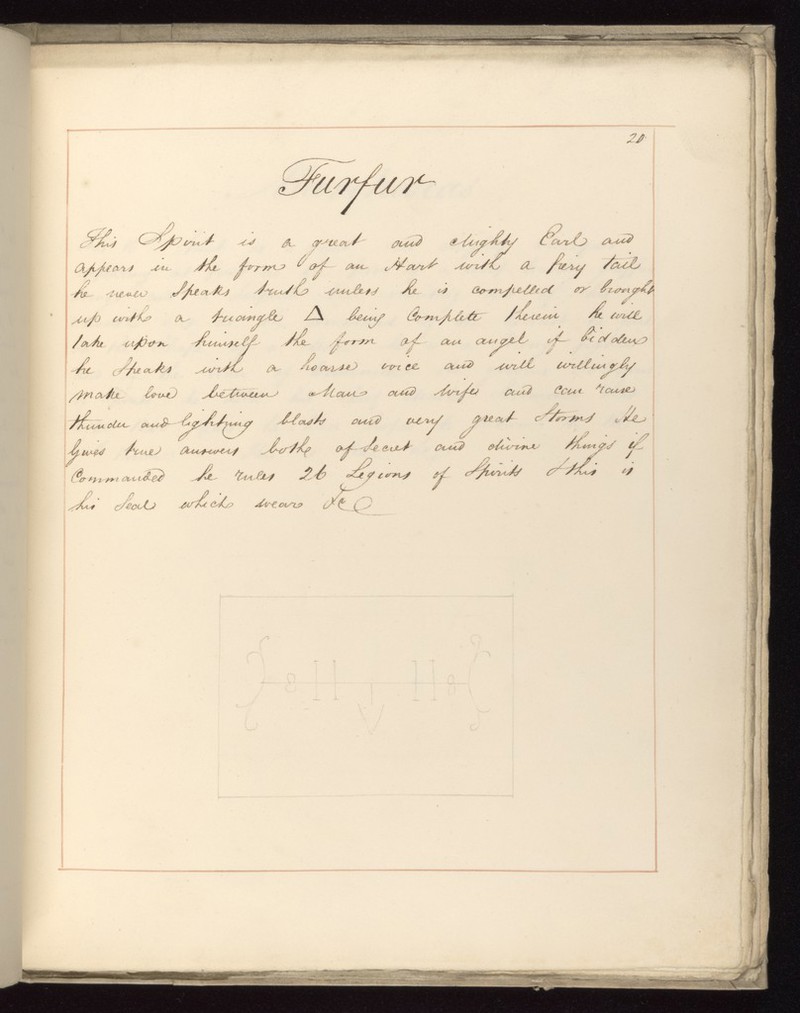 20
Furfur
This Spirit is a great and Mighty Earl and
appears in the form of an Hart with a fiery tail
he never Speaks truth unless he is compelled or brought
up with a triangle △ being Complete therein he will
take upon himself the form of an angel if bidden
he Speaks with a hoarse voice and will willingly
make love between Man and Wife and can raise
thunder and lightning blasts and very great Storms He
Gives true answers both of Secret and divine things if
Commanded he rules 26 Legions of Spirits & this is
his Seal which wear &c